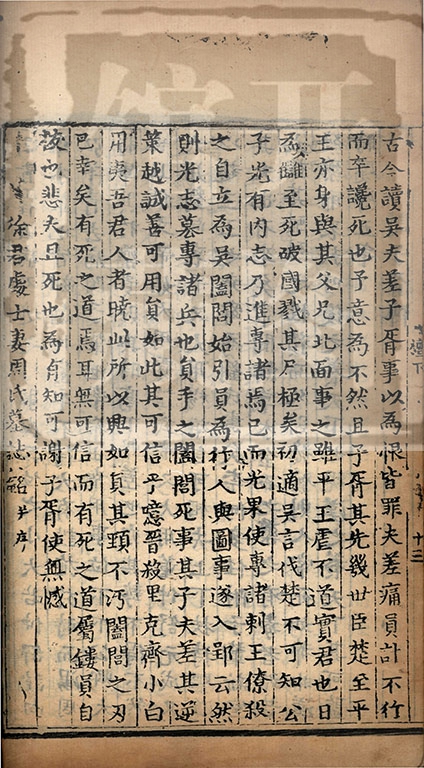 古今讀吳夫差子胥事以為恨皆罪夫差痛員計不行
而卒讒死也予意為不然且子胥其先幾世臣楚至平
王亦身與其父兄北面事之雖平王虐不道實君也日
為讎至死破國戮其尸極矣初適吳言伐楚不可知公
子光有內志乃進專諸焉已而光果使專諸刺王僚殺
之自立為吳闔閭始引員為行人與圖事遂入郢云然
則光志墓專諸兵也員手之闔閭死事其子夫差其逆
策越誠善可用員如此其可信乎噫晉殺里克齊小白
用夷吾君人者曉此所以興如員其頸不汚闔閭之刃
已幸矣有死之道焉耳無可信而有死之道屬鏤員自
後也悲夫且死也為有知可謝子胥使無憾
徐君處士妻周氏墓誌銘并序
十三